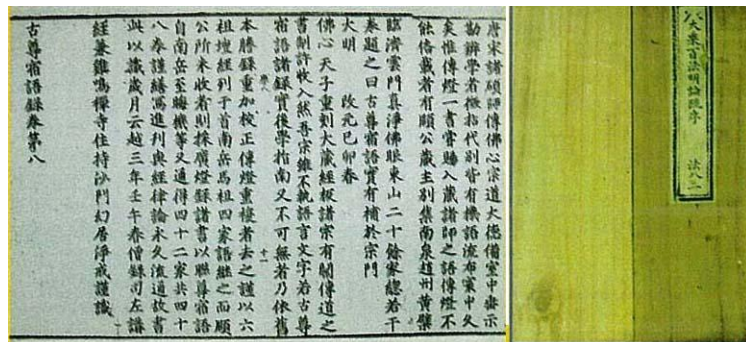 唐宋諸碩師傳佛心宗道大德備室中垂示
勘辦學者徵拈代別皆有機語流布寰中久
矣惟傳燈一書嘗賜入藏諸師之語傳燈不
能俻載者有頤公藏主別集南泉趙州黃檗
臨濟雲門真淨佛眼東山二十餘家總若干
卷題之曰古尊宿語實有補於宗門
大明 改元己卯春
佛心天子重刻大藏經板諸宗有關傳道之
書制許收入然吾宗雖不執語言文字若古尊
宿語諸錄實後學指南又不可無者乃依舊
本謄錄重加校正傳燈重複者去之謹以六
祖壇經列于首南岳馬祖四家語繼之而頤
公所未收者則採廣燈錄諸書以聯尊宿語
自南岳至晦機等又通得四十二家共四十
八卷謹繕寫進刊與經律論永久流通故書
此以識歲月云越三年壬午春僧錄司左講
經兼雞鳴禪寺住持沙門幻居淨戒謹識
古尊宿語錄卷第八
大乘百法明論經序 法八二